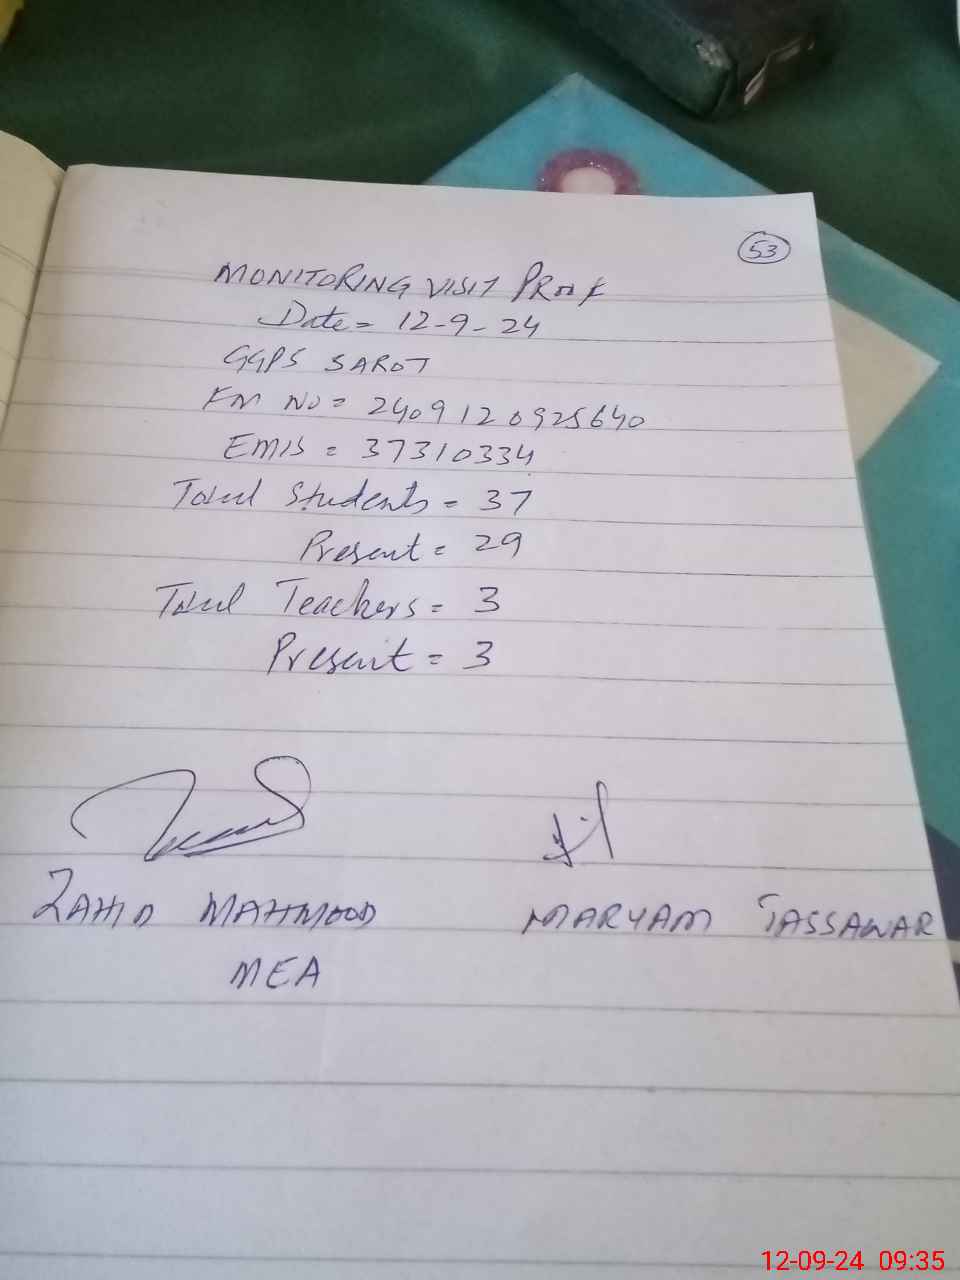 53
MONITORING VISIT PROOF
Date = 12-9-24
GGPS SAROT
FM NO = 2409120925640
EMIS = 37310334
Total Students = 37
Present = 29
Total Teachers = 3
Present = 3
ZAHID MAHMOOD MARYAM TASSAWAR
MEA
12-09-24 09:35